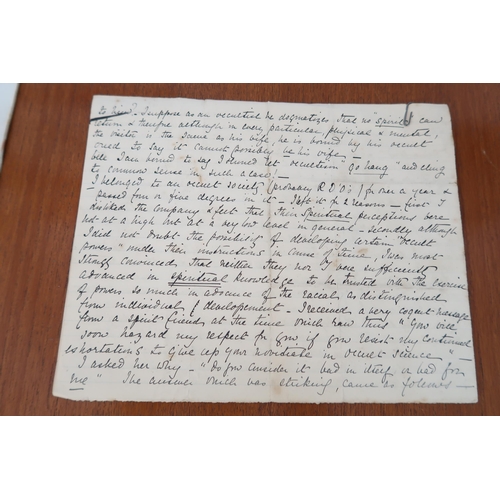 to him? I suppose as an occultist he dogmatizes that no "spirit" can
return & therefore although in every particular, physical & mental,
the visitor is the same as his wife, he is bound by his occult
creed to say it cannot possibly be his wife.
I am bound to say I should let occultism "go hang" and cling
to common sense in such a case!
I belonged to an occult society (probably R D O's) for over a year &
passed four or five degrees in it - I left it for 2 reasons - first I
disliked the company & felt that their spiritual perceptions were
not at a high but at a very low level in general - secondly although
I did not doubt the possibility of developing certain "occult
powers" under their instructions in course of time I was most
strongly convinced that neither they nor I were sufficiently
advanced in spiritual knowledge to be trusted with the exercise
of powers so much in advance of the racial as distinguished
from individual development - I received a very cogent message
from a spirit friend at the time which ran thus "You will
soon hazard my respect for you if you resist my continual
exhortations to give up your novitiate in occult science" -
I asked her why - "Do you consider it bad in itself or bad for
me" The answer which was striking, came as follows -